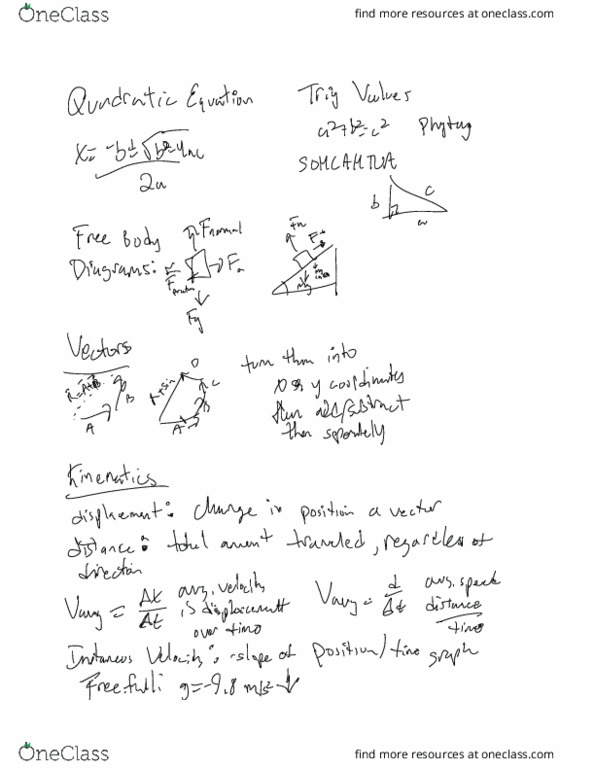 OneClass
find more resources at oneclass.com
Quadratic Equation
x = -b ± √b² - 4ac
2a
Trig Values
a² + b² = c² Phytag
SOHCAHTOA
b
c
a
Free Body
Diagrams:
Fnormal
Fa
Fg
Fn
mg
Vectors
R = A + B
A
B
A
B
C
D
turn them into
x & y coordinates
then add/subtract
them separately
Kinematics
displacement: change in position a vector
distance: total amount traveled, regardless of
direction
Vavg = Δx
Δt
avg. velocity
is displacement
over time
Vavg = d
Δt
avg. speed
distance
time
Velocity: slope of position/time graph
Freefall: g = -9.8 m/s² ↓
OneClass
find more resources at oneclass.com